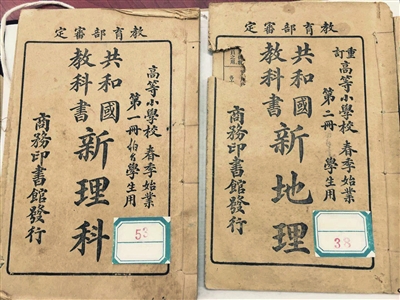 教育部審定
高等小學校
春季始業
第一冊
學生用
共和國
教科書
新理科
商務印書館發行
53
教育部審定
重訂
高等小學校
春季始業
第二冊
學生用
共和國
教科書
新地理
商務印書館發行
38